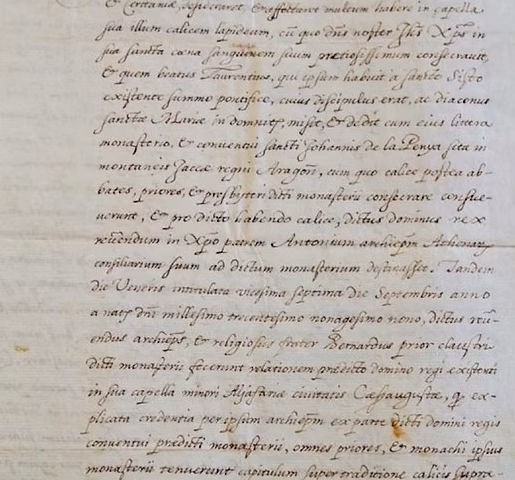 & Ceritaniæ, desideraret, & affectaret multum habere in capella
sua illum calicem lapideum, cū quo dñs noster Jhs Xps in
sua sancta cœna sanguinem suum pretiosissimum consecravit,
& quem beatus Laurentius, qui ipsum habuit a sancto Sisto
existente summo pontifice, cuius discipulus erat, ac diaconus
sanctæ Mariæ in domnitȝ, misit, & dedit cum eius littera
monasterio, & conventui sancti Johannis de la Penya sita in
montaneis Jaccæ regni Aragon, cum quo calice postea ab-
bates, priores, & presbyteri dicti monasterii consecrare consue-
verunt, & pro dicto habendo calice, dictus dominus rex
revēendum in Xpo patrem Antonium archiepm Athenaȝ
consiliarium suum ad dictum monasterium destinasset. Tandem
die Veneris intitulata vicesima septima die Septembris anno
a natȝ dnī millesimo trecentesimo nonagesimo nono, dictus revē-
endus archieps, & religiosus frater Bernardus prior claustri
dicti monasterii fecerunt relationem prædicto domino regi existenti
in sua capella minori Aljafariæ civitatis Cæsaugustæ, q ex-
plicata credentia per ipsum archiepm ex parte dicti domini regis
conventui prædicti monasterii, omnes priores, & monachi ipsius
monasterii tenuerunt capitulum super traditione calicis supra-